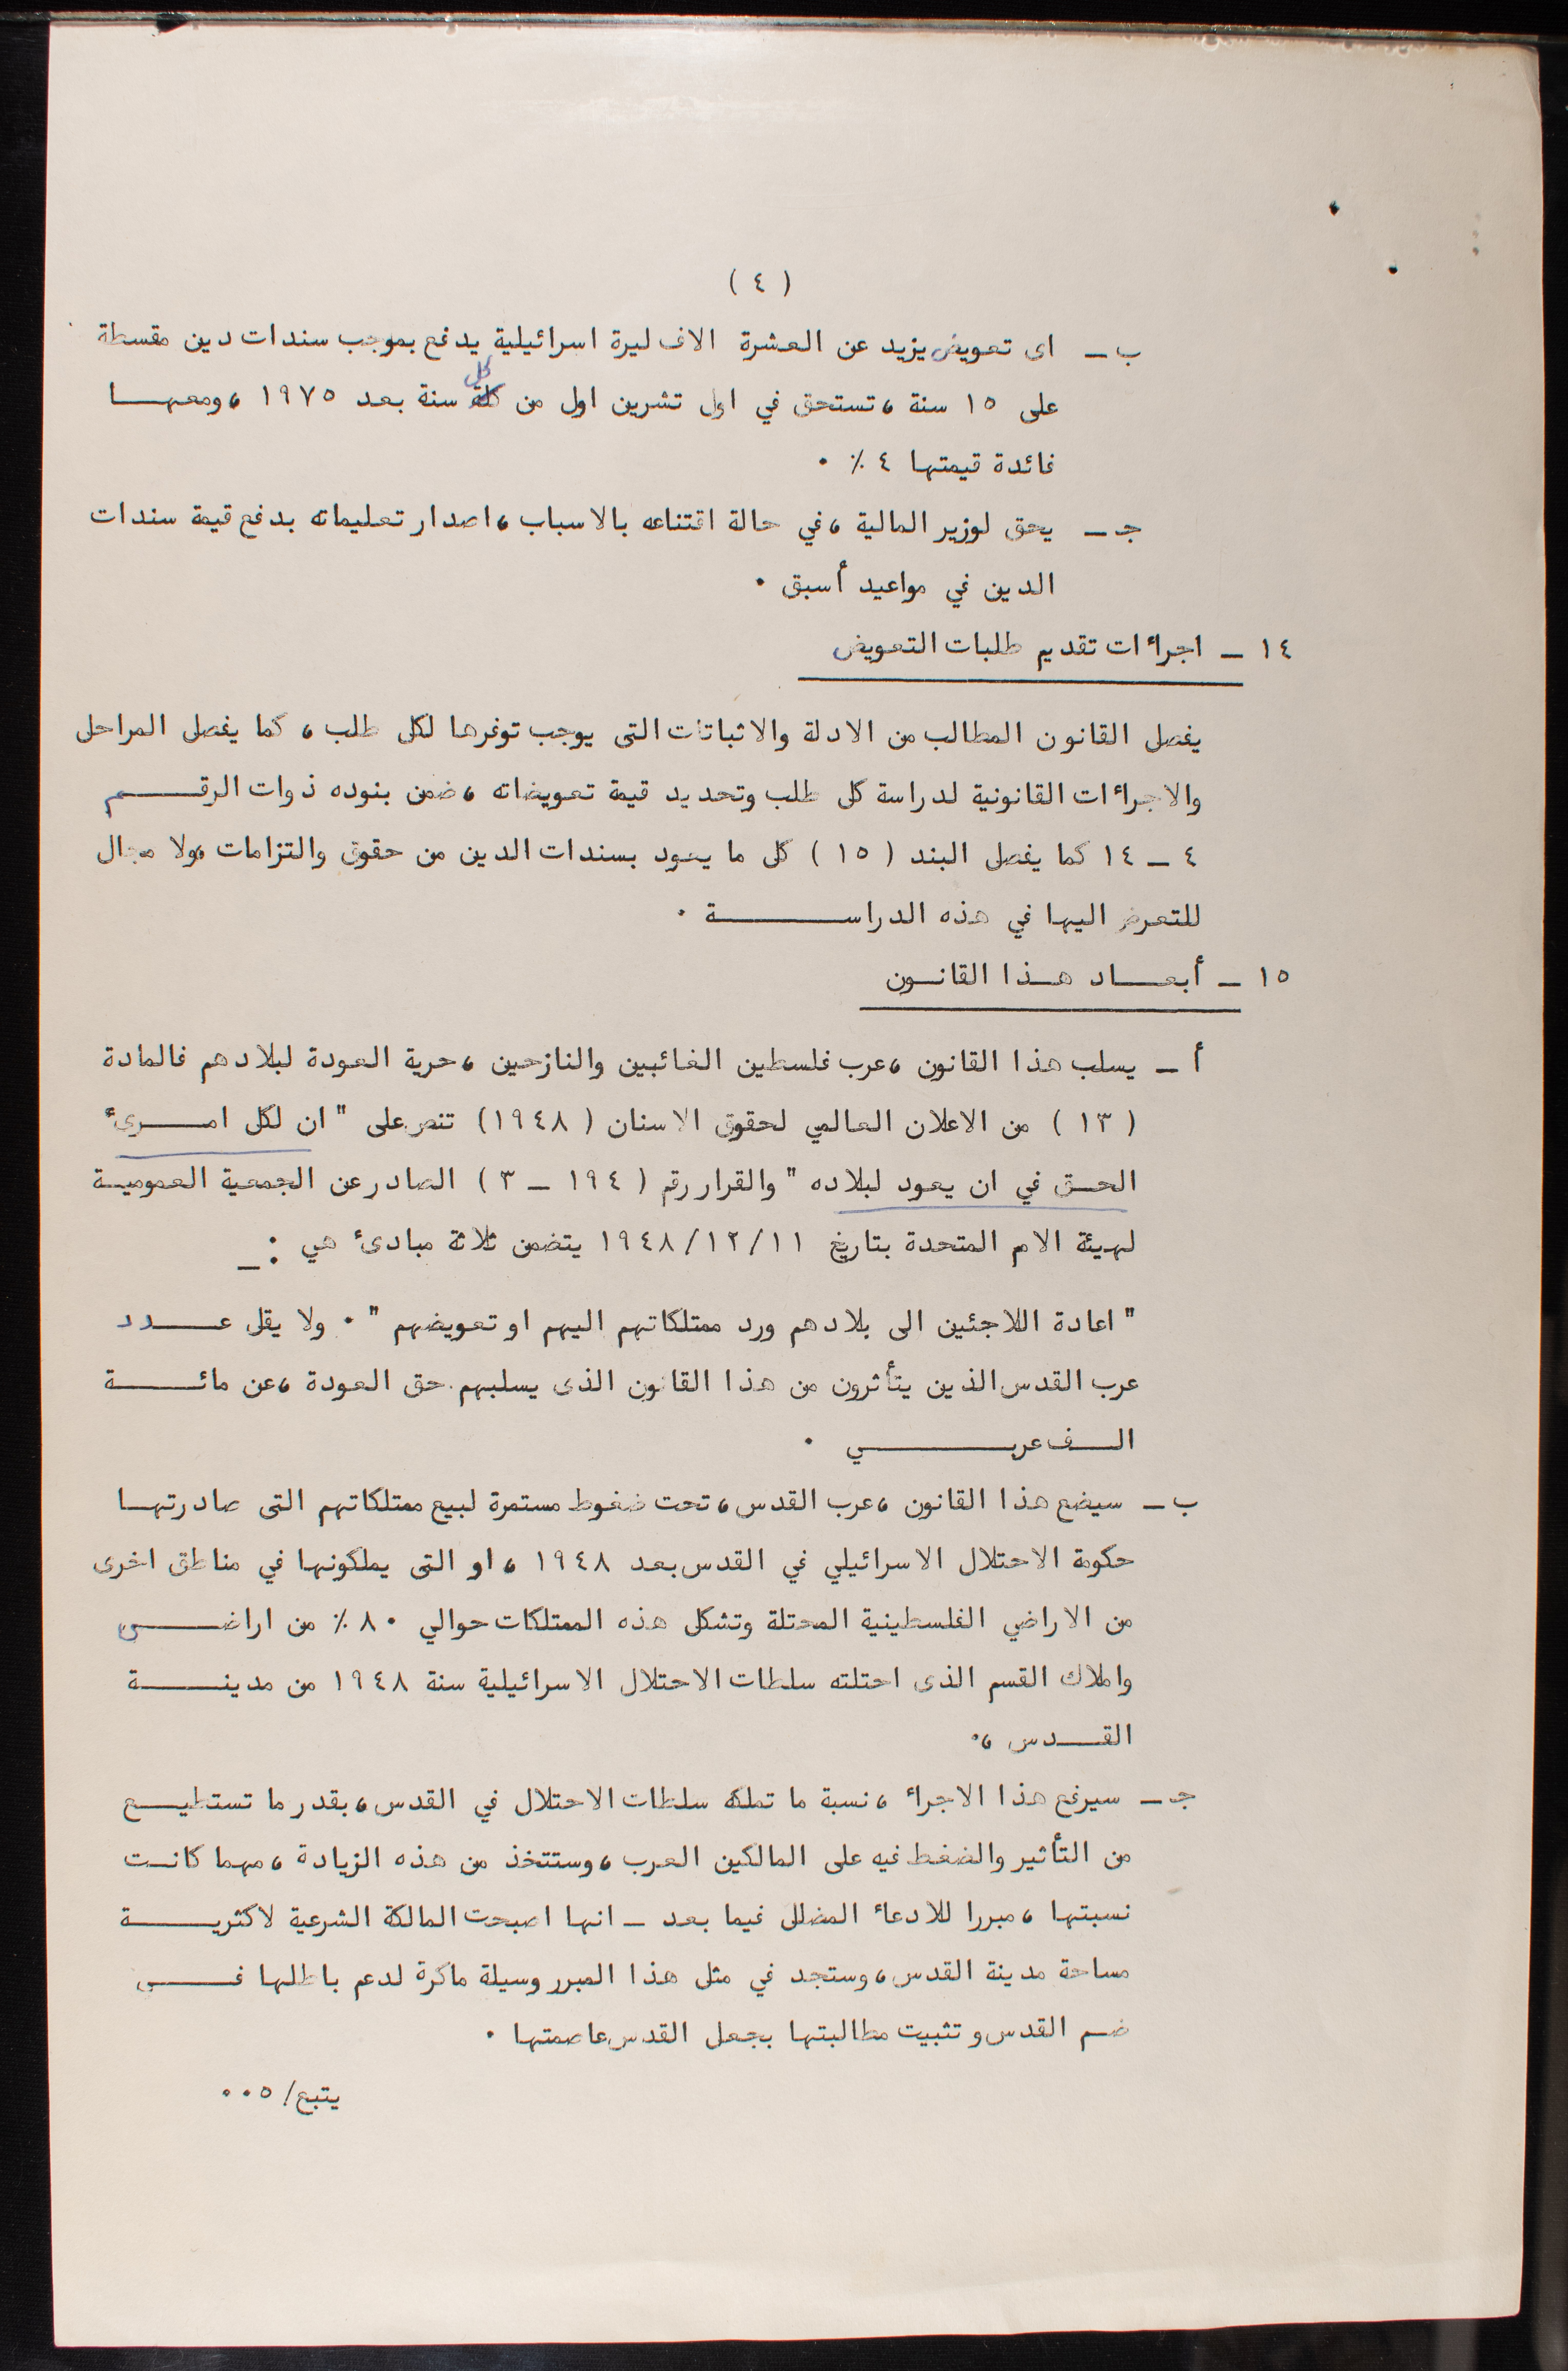 ( ٤ )
ب ــ اى تعويض يزيد عن العشرة الاف ليرة اسرائيلية يدفع بموجب سندات دين مقسطة
على ١٥ سنة ، تستحق في اول تشرين اول من كل سنة بعد ١٩٧٥ ، ومعهــا
فائدة قيمتها ٤ ٪ ٠
جـ ــ يحق لوزير المالية ، في حالة اقتناعه بالاسباب ، اصدار تعليماته بدفع قيمة سندات
الدين في مواعيد أسبق ٠
١٤ ــ اجراءات تقديم طلبات التعويض
يفصل القانون المطالب من الادلة والاثباتات التى يوجب توفرها لكل طلب ، كما يفصل المراحل
والاجراءات القانونية لدراسة كل طلب وتحديد قيمة تعويضاته ، ضمن بنوده ذوات الرقــم
٤ ــ ١٤ كما يفصل البند ( ١٥ ) كل ما يعود بسندات الدين من حقوق والتزامات ، ولا مجال
للتعرض اليها في هذه الدراســــة ٠
١٥ ــ أبعــاد هــذا القانــون
أ ــ يسلب هذا القانون ، عرب فلسطين الغائبين والنازحين ، حرية العودة لبلادهم فالمادة
( ١٣ ) من الاعلان العالمي لحقوق الاسنان ( ١٩٤٨ ) تنص على " ان لكل امــرىء
الحــق في ان يعود لبلاده " والقرار رقم ( ١٩٤ ــ ٣ ) الصادر عن الجمعية العموميــة
لهيئة الامم المتحدة بتاريخ ١٩٤٨/١٢/١١ يتضمن ثلاثة مبادىء هي : ــ
" اعادة اللاجئين الى بلادهم ورد ممتلكاتهم اليهم او تعويضهم " ٠ ولا يقل عــدد
عرب القدس الذين يتأثرون من هذا القانون الذى يسلبهم حق العودة ، عن مائــة
الــف عربــــي ٠
ب ــ سيضع هذا القانون ، عرب القدس ، تحت ضغوط مستمرة لبيع ممتلكاتهم التى صادرتهــا
حكومة الاحتلال الاسرائيلي في القدس بعد ١٩٤٨ ، او التى يملكونها في مناطق اخرى
من الاراضي الفلسطينية المحتلة وتشكل هذه الممتلكات حوالي ٨٠ ٪ من اراضــي
واملاك القسم الذى احتلته سلطات الاحتلال الاسرائيلية سنة ١٩٤٨ من مدينــة
القــدس ، ٠
جـ ــ سيرفع هذا الاجراء ، نسبة ما تملكه سلطات الاحتلال في القدس ، بقدر ما تستطيــع
من التأثير والضغط فيه على المالكين العرب ، وستتخذ من هذه الزيادة ، مهما كانــت
نسبتها ، مبررا للادعاء المضلل فيما بعد ــ انها اصبحت المالكة الشرعية لاكثريــة
مساحة مدينة القدس ، وستجد في مثل هذا المبرر وسيلة ماكرة لدعم باطلها فــي
ضــم القدس وتثبيت مطالبتها بجعل القدس عاصمتها ٠
يتبع/ ٥ ٠٠